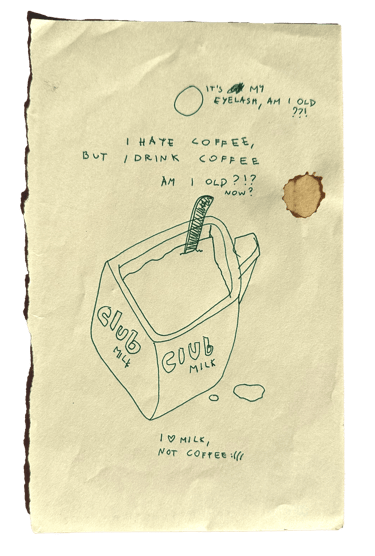 IT'S MY
EYELASH, AM I OLD
??!
I HATE COFFEE,
BUT I DRINK COFFEE
AM I OLD?!?
NOW?
Club
MILK
CLUb
MILK
I ♡ MILK,
NOT COFFEE:(((